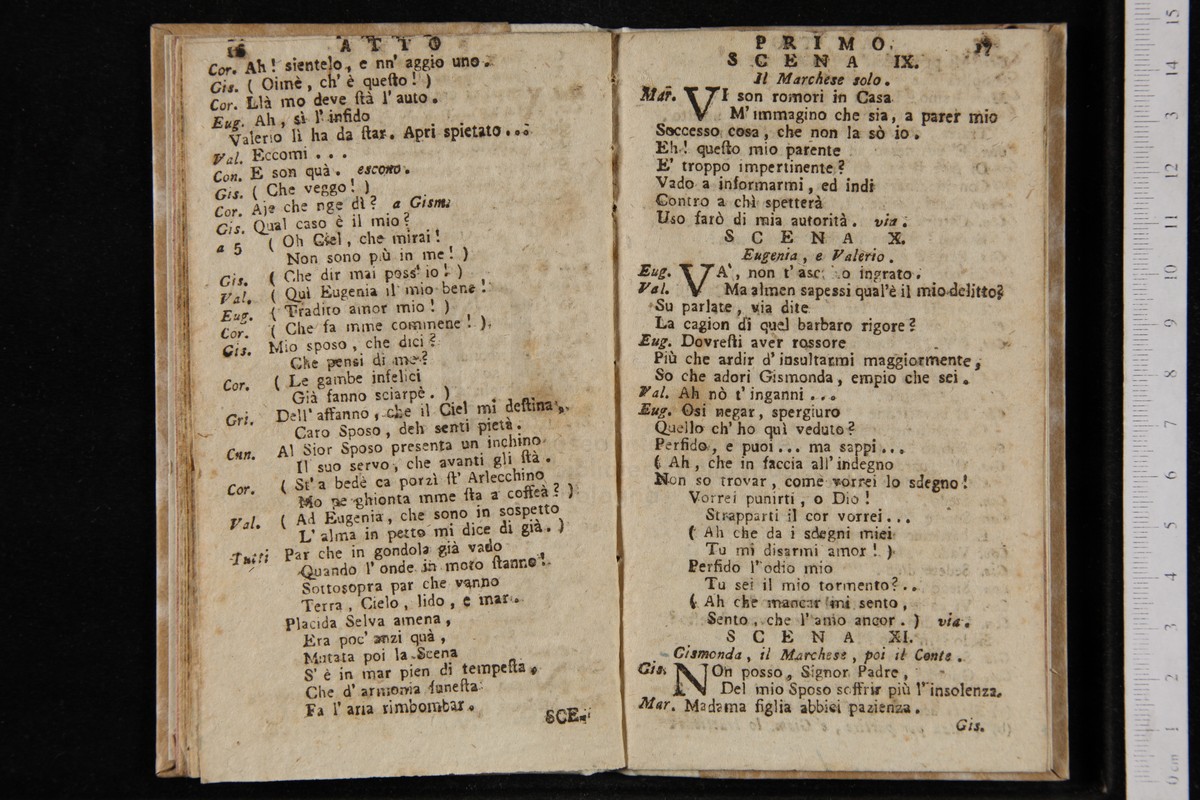 16 ATTO
Cor. Ah! sientelo, e nn' aggio uno.
Gis. ( Oimè, ch' è queſto! )
Cor. Llà mo deve ſtà l' auto.
Eug. Ah, sì l' infido
Valerio lì ha da ſtar. Apri spietato...
Val. Eccomi . . .
Con. E son quà. escono.
Gis. ( Che veggo! )
Cor. Aje che nge dì? a Gism.
Gis. Qual caso è il mio?
a 5 ( Oh Ciel, che mirai!
Non sono più in me! )
Gis. ( Che dir mai poss' io! )
Val. ( Quì Eugenia il mio bene!
Eug. ( Tradito amor mio! )
Cor. ( Che fa mme commene! )
Gis. Mio sposo, che dici?
Che pensi di me?
Cor. ( Le gambe infelici
Già fanno sciarpè. )
Gri. Dell' affanno, che il Ciel mi deſtina,
Caro Sposo, deh senti pietà.
Cnn. Al Sior Sposo presenta un inchino
Il suo servo, che avanti gli ſtà.
Cor. ( St' a bedè ca porzì ſt' Arlecchino
Mo pe ghionta mme ſta a coffeà? )
Val. ( Ad Eugenia, che sono in sospetto
L' alma in petto mi dice di già. )
Tutti Par che in gondola già vado
Quando l' onde in moto ſtanno!
Sottosopra par che vanno
Terra, Cielo, lido, e mar.
Placida Selva amena,
Era poc' anzi quà,
Mutata poi la Scena
S' è in mar pien di tempeſta,
Che d' armonia funeſta
Fa l' aria rimbombar.
SCE-
PRIMO. 17
SCENA IX.
Il Marchese solo.
Mar. VI son romori in Casa
M' immagino che sia, a parer mio
Soccesso cosa, che non la sò io.
Eh! queſto mio parente
E' troppo impertinente?
Vado a informarmi, ed indi
Contro a chi spetterà
Uso farò di mia autorità. via.
SCENA X.
Eugenia, e Valerio.
Eug. VA', non t' asc o ingrato.
Val. Ma almen sapessi qual'è il mio delitto?
Su parlate, via dite
La cagion di quel barbaro rigore?
Eug. Dovreſti aver rossore
Più che ardir d' insultarmi maggiormente,
So che adori Gismonda, empio che sei.
Val. Ah nò t' inganni ...
Eug. Osi negar, spergiuro
Quello ch' ho quì veduto?
Perfido, e puoi... ma sappi...
( Ah, che in faccia all' indegno
Non so trovar, come vorrei lo sdegno!
Vorrei punirti, o Dio!
Strapparti il cor vorrei...
( Ah che da i sdegni miei
Tu mi disarmi amor! )
Perfido l' odio mio
Tu sei il mio tormento?..
( Ah che mancar mi sento,
Sento, che l' amo ancor. ) via.
SCENA XI.
Gismonda, il Marchese, poi il Conte.
Gis. NOn posso, Signor Padre,
Del mio Sposo soffrir più l' insolenza.
Mar. Madama figlia abbiei pazienza.
Gis.